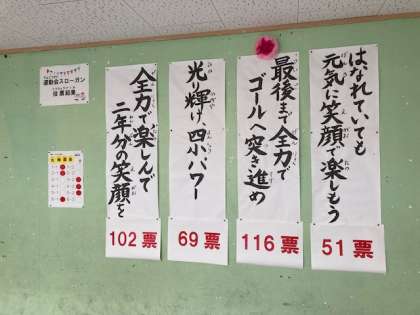 はなれていても
元気に笑顔で楽しもう
51票
最後まで全力で
ゴールへ突き進め
116票
光り輝け、四小パワー
69票
全力で楽しんで
二年分の笑顔を
102票
運動会スローガン
投票結果